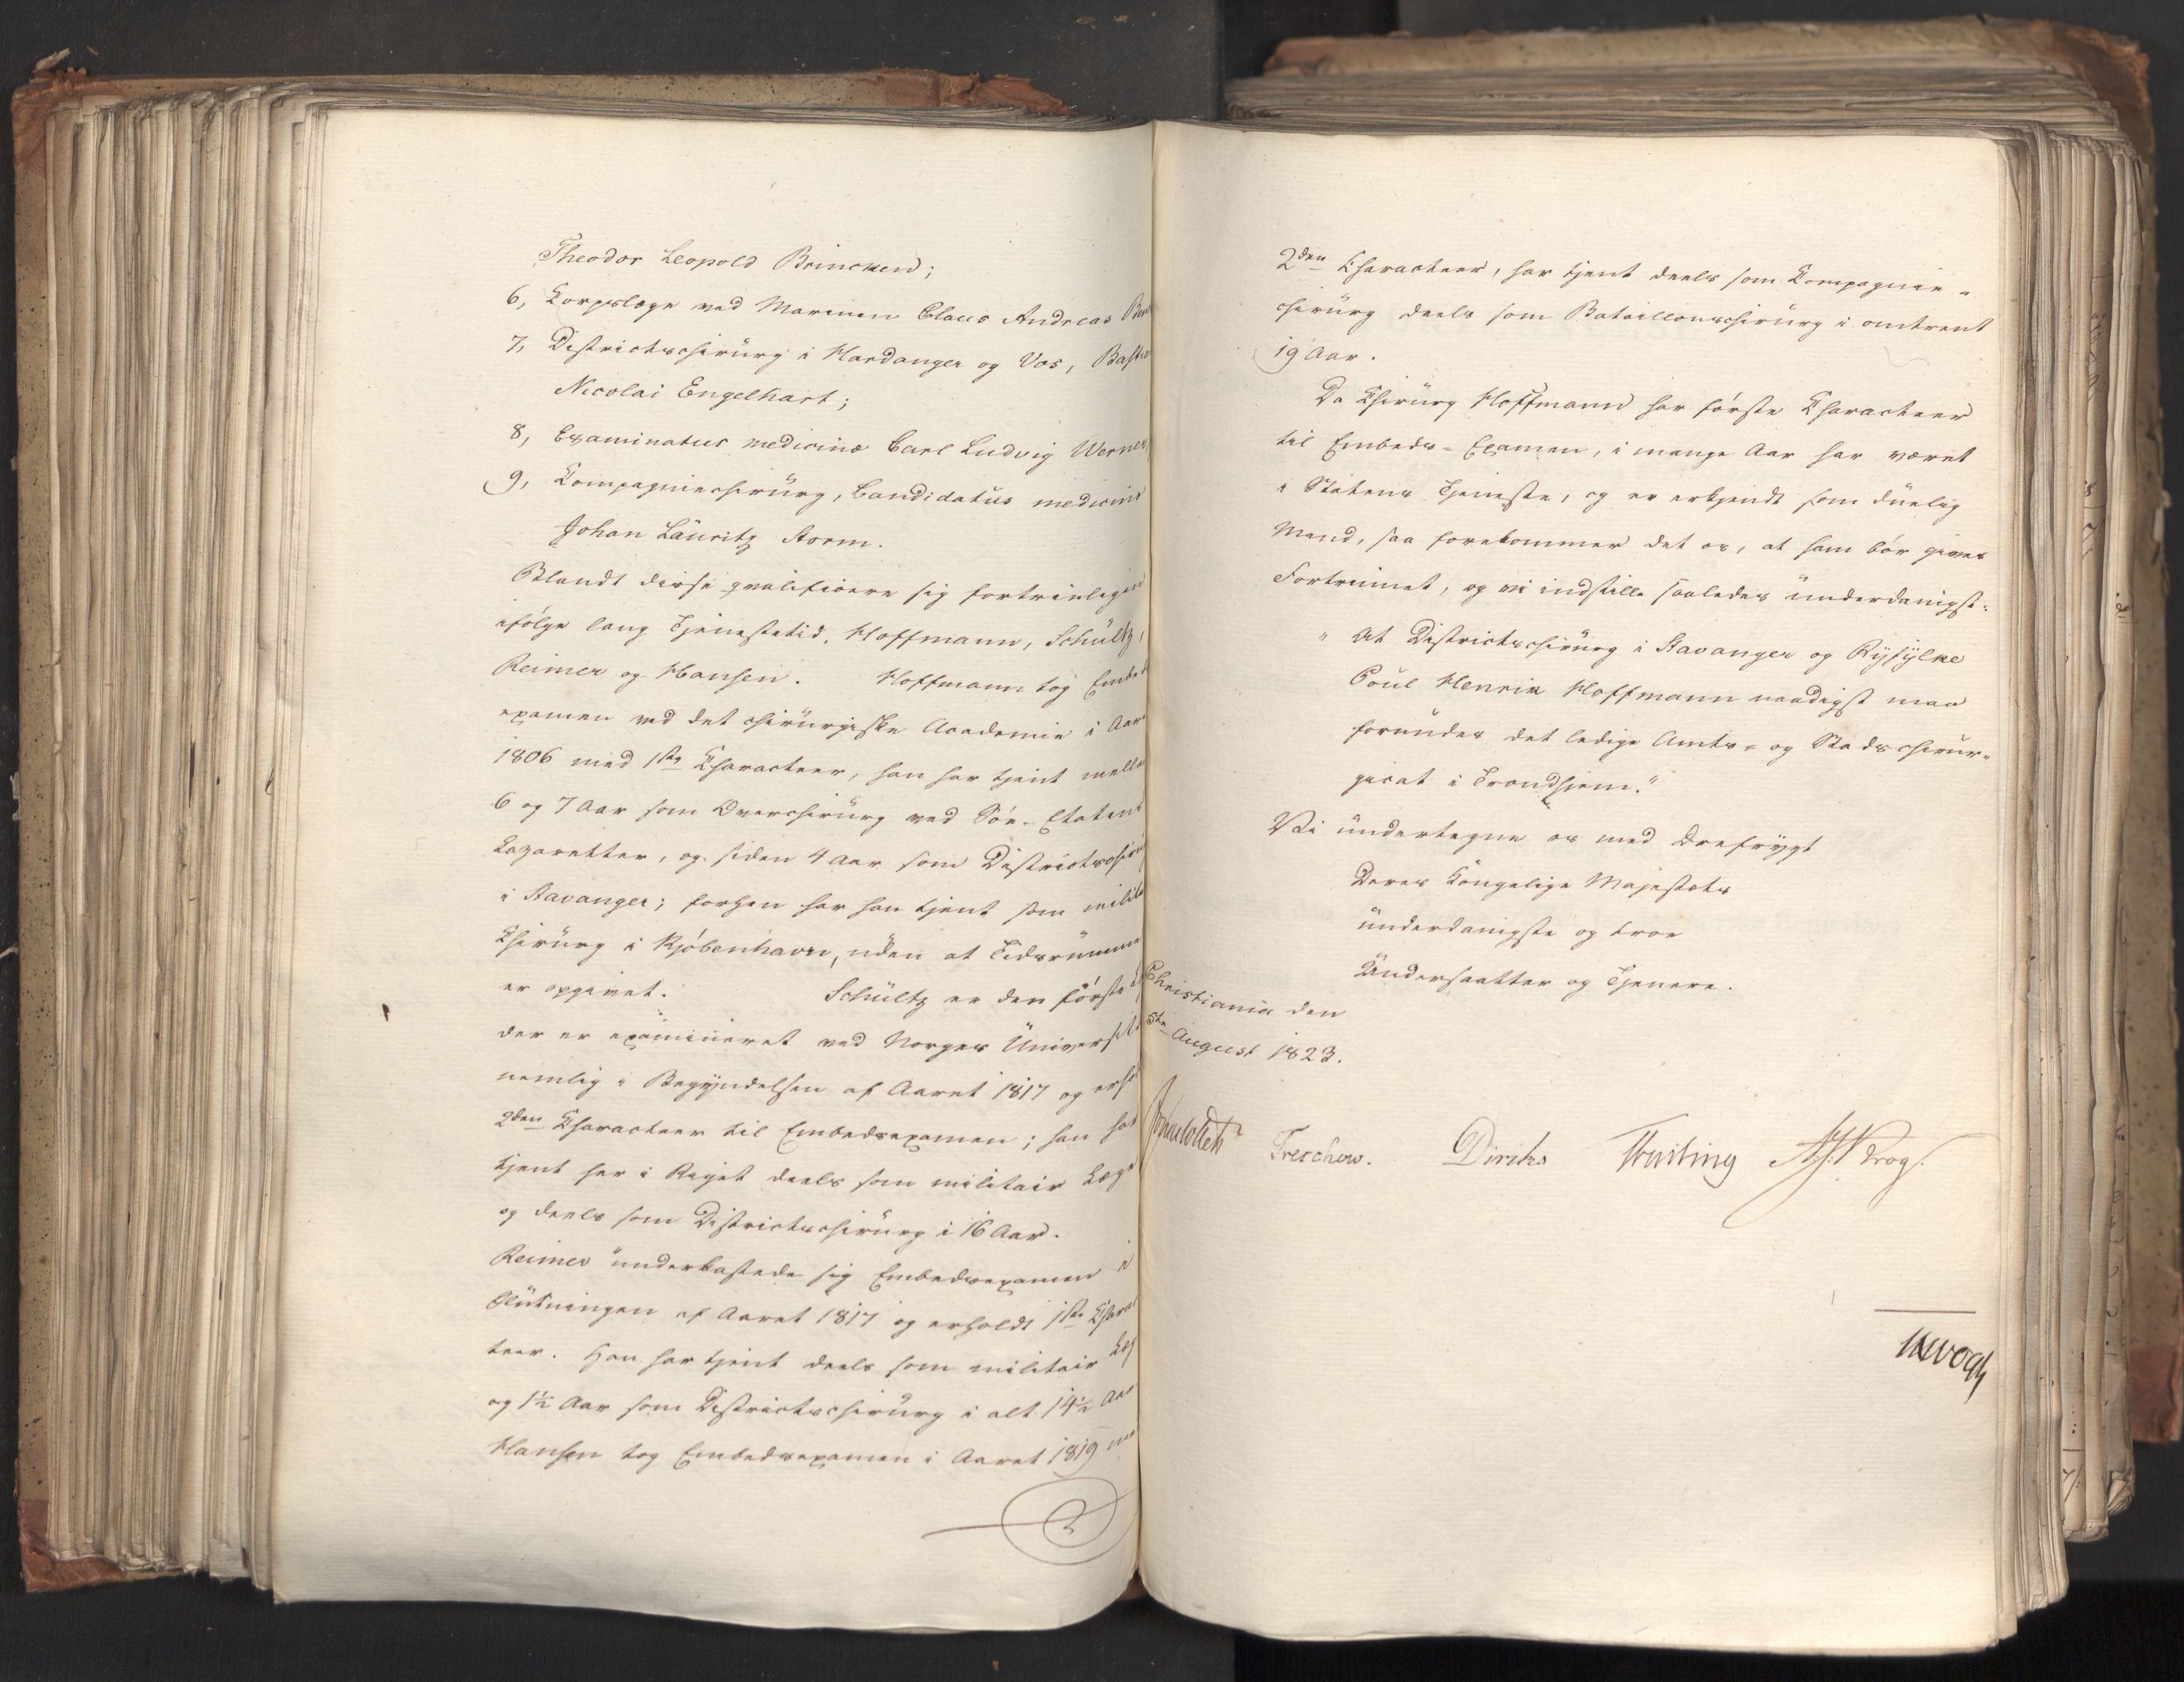 Theodor Leopold Brincken;
6, Korpslæge ved Marinen Claus Andreas
7, Districtschirurg i Hardanger og Vos,
Nicolai Engelhart;
8, Examinatus medicinæ Carl Ludvig Werner,
9, Compagniechirurg, Candidatus medicinæ
Johan Lauritz Storm.
Blandt disse qvalificere sig fortrinligen
ifölge lang Tjenestetid, Hoffmann, Schültz,
Reimer og Hansen. Hoffmann tog Embeds
examen ved det chirurgiske Academie i Aar
1806 med 1ste Characteer, han har tjent mellem
6 og 7 Aar som Overchirurg ved Söe-Etatens
Lazaretter, og siden 4 Aar som Districtschirurg
i Stavanger; forhen har han tjent som militair
Chirurg i Kjöbenhavn, uden at Tidsrummet
er opgivet. Schültz er den förste
der er examineret ved Norges Universitet
nemlig i Begyndelsen af Aaret 1817 og erholdt
2den Characteer til Embedsexamen; han har
tjent her i Riget deels som militair Læge
og deels som Districtschirurg i 16 Aar.
Reimer underkastede sig Embedsexamen i
Slutningen af Aaret 1817 og erholdt 1ste Charac
teer. Han har tjent deels som militair Læge
og 1½ Aar som Districtschirurg i alt 14½ Aar
Hansen tog Embedsexamen i Aaret 1819 med
2den Characteer, har tjent deels som Compagnie-
chirurg deels som Bataillonschirurg i omtrent
19 Aar.
Da Chirurg Hoffmann har förste Characteer
til Embeds-Examen, i mange Aar har været
i Statens Tjeneste, og er erkjendt som duelig
Mand, saa forekommer det os, at ham bör gives
Fortrinnet, og vi indstille saaledes underdanigst:
"At Districtschirurg i Stavanger og Ryfylke
Poul Henrik Hoffmann naadigst maa
forundes det ledige Amts- og Stadschirur-
gicat i Trondhjem."
Vi undertegne os med Ærefrygt
Deres Kongelige Majestæts
underdanigste og troe
Undersaatter og Tjenere.
Christiania den
August 1823.
Treschow. Diriks